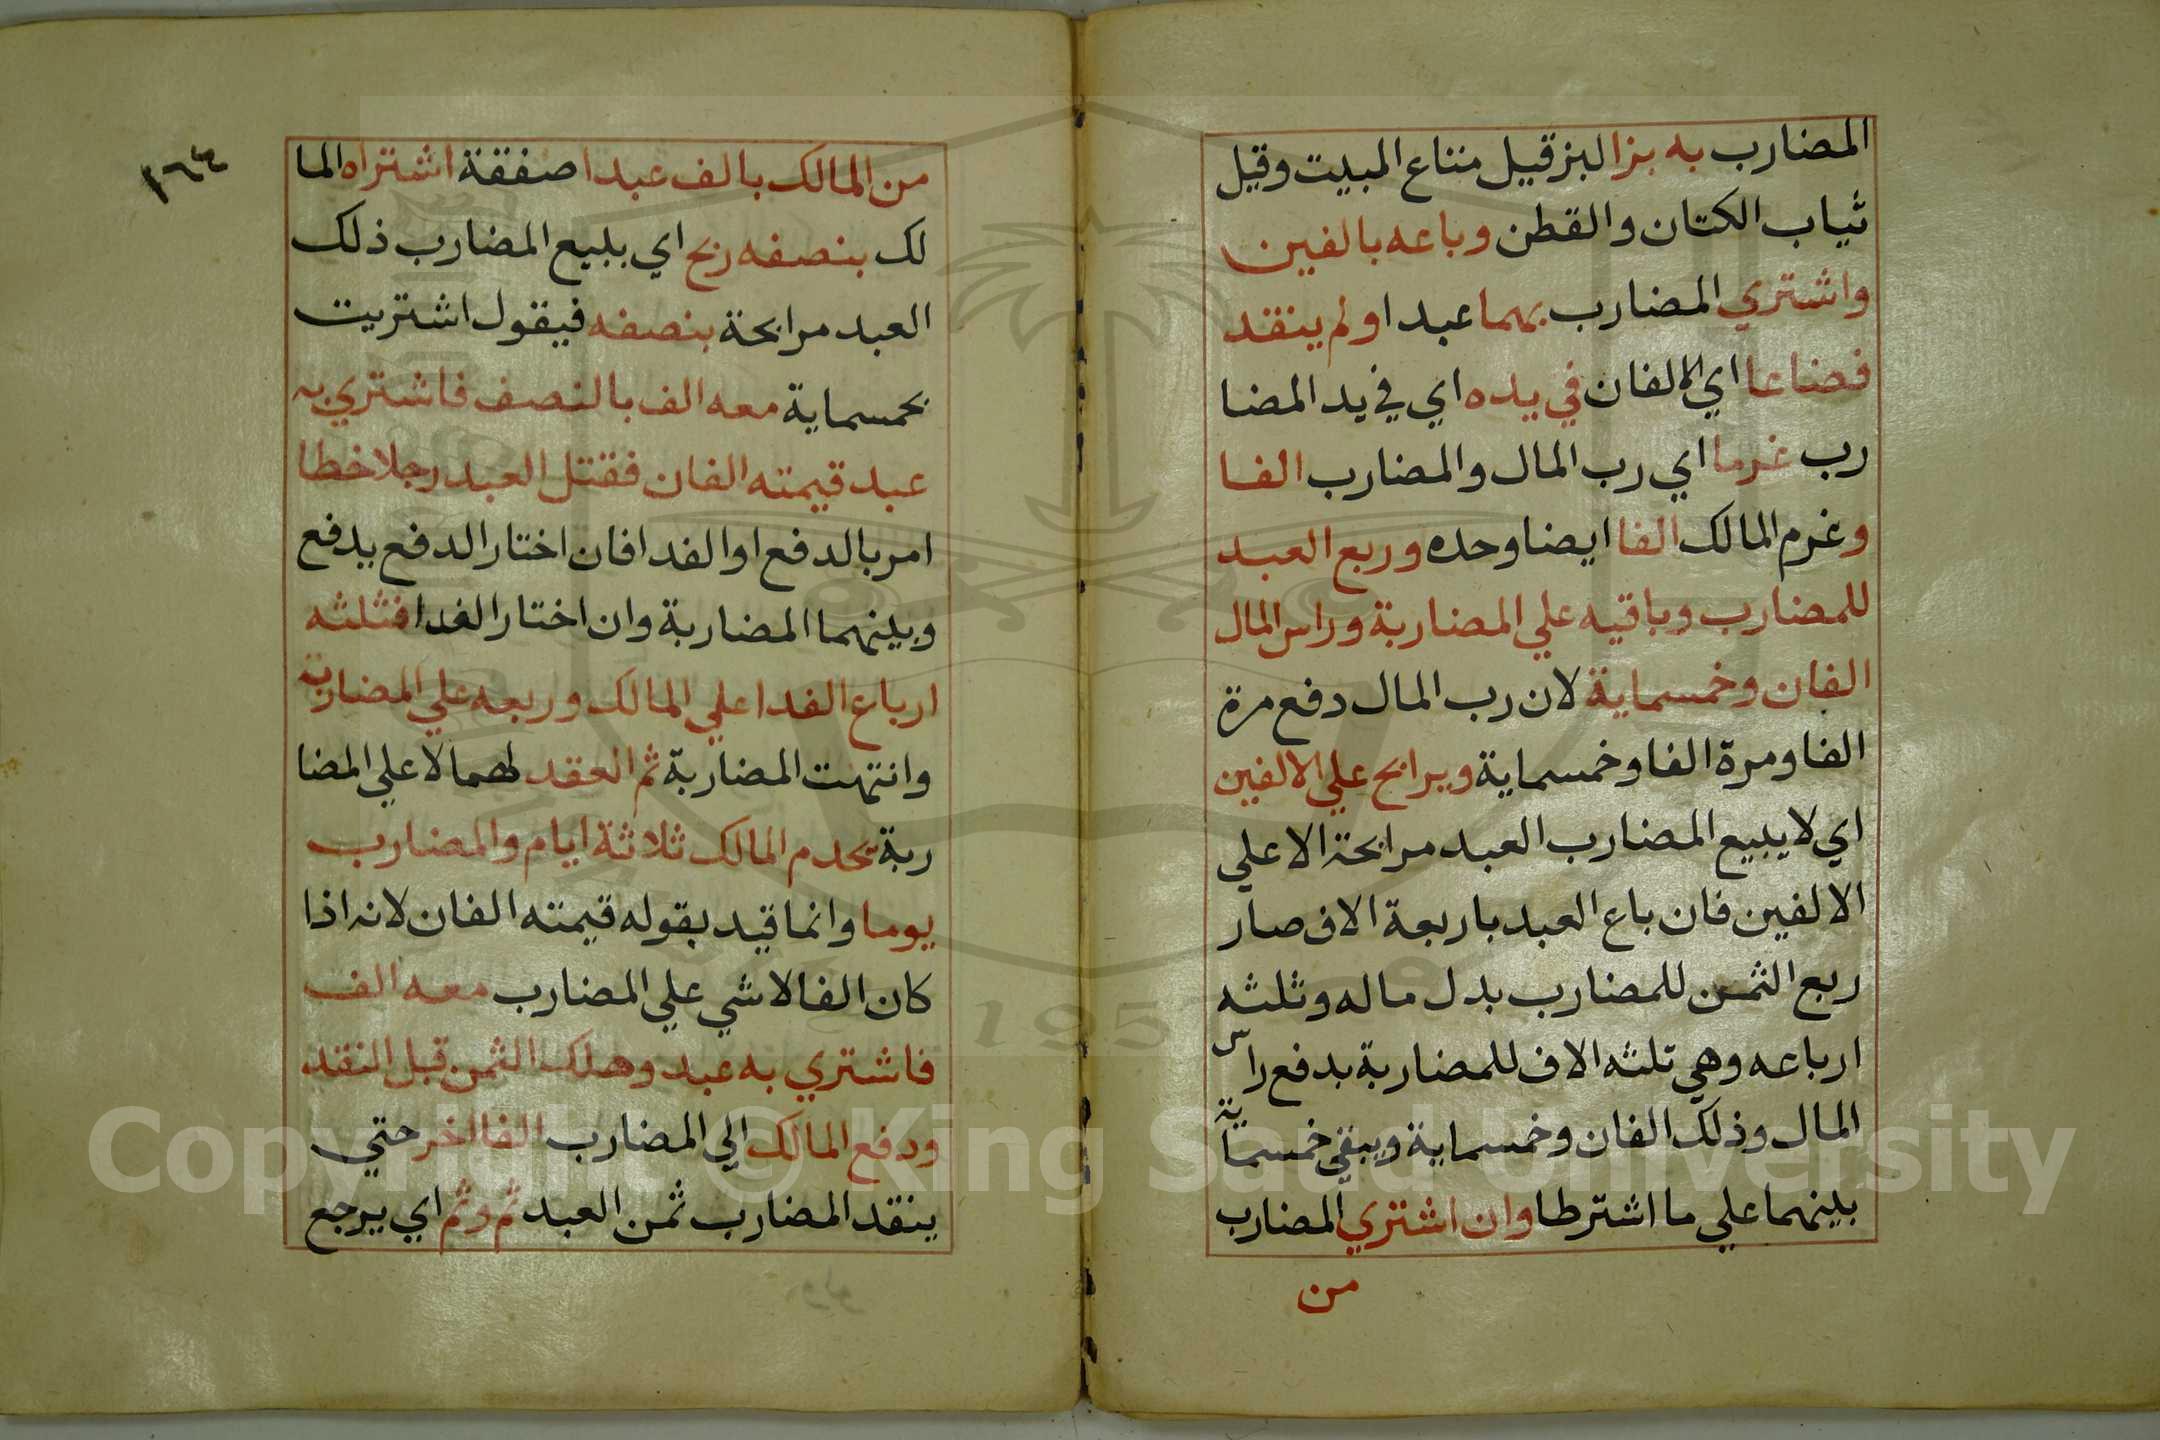 المضارب به بزا البز قيل متاع المبيت وقيل
ثياب الكتان والقطن وباعه بالفين
واشتري المضارب بهما عبدا ولم ينقد
فضاعا اي الالفان في يده اي في يد المضا
رب غرما اي رب المال والمضارب الفا
وغرم المالك الفا ايضا وحده وربع العبد
للمضارب وباقيه علي المضاربة وراس المال
الفان وخمسماية لان رب المال دفع مرة
الفا ومرة الفا وخمسماية ويرابح علي الالفين
اي لا يبيع المضارب العبد مرابحة الا علي
الالفين فان باع العبد باربعة الاف صار
ربع الثمن للمضارب بدل ماله وثلثه
ارباعه وهي ثلثه الاف للمضاربة بدفع راس
المال وذلك الفان وخمسماية ويبقي خمسماية
بينهما علي ما اشترطا وان اشتري المضارب
من
١٦٤
من المالك بالف عبدا صفقة اشتراه الما
لك بنصفه ربح اي يبيع المضارب ذلك
العبد مرابحة بنصفه فيقول اشتريت
بخمسماية معه الف بالنصف فاشتري به
عبد قيمته الفان فقتل العبد رجلا خطا
امر بالدفع او الفدا فان اختار الدفع يدفع
وبينهما المضاربة وان اختار الفدا فثلثه
ارباع الفدا علي المالك وربعه علي المضاربة
وانتهت المضاربة ثم العقد لهما لا علي المضا
ربة يخدم المالك ثلاثة ايام والمضارب
يوما وانما قيد بقوله قيمته الفان لانه اذا
كان الفا لا شي علي المضارب معه الف
فاشتري به عبد وهلك الثمن قبل النقد
ودفع المالك الي المضارب الفا اخر حتي
ينقد المضارب ثمن العبد ثم وثم اي يرجع
Copyright © King Saud University